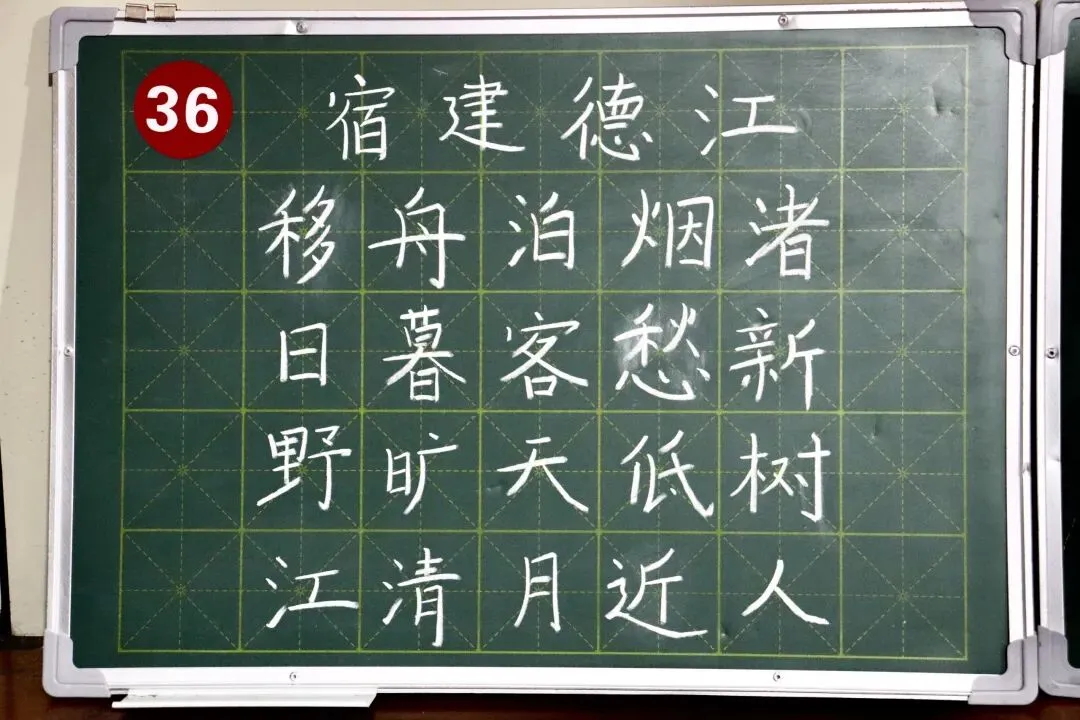 36
宿建德江
移舟泊烟渚
日暮客愁新
野旷天低树
江清月近人